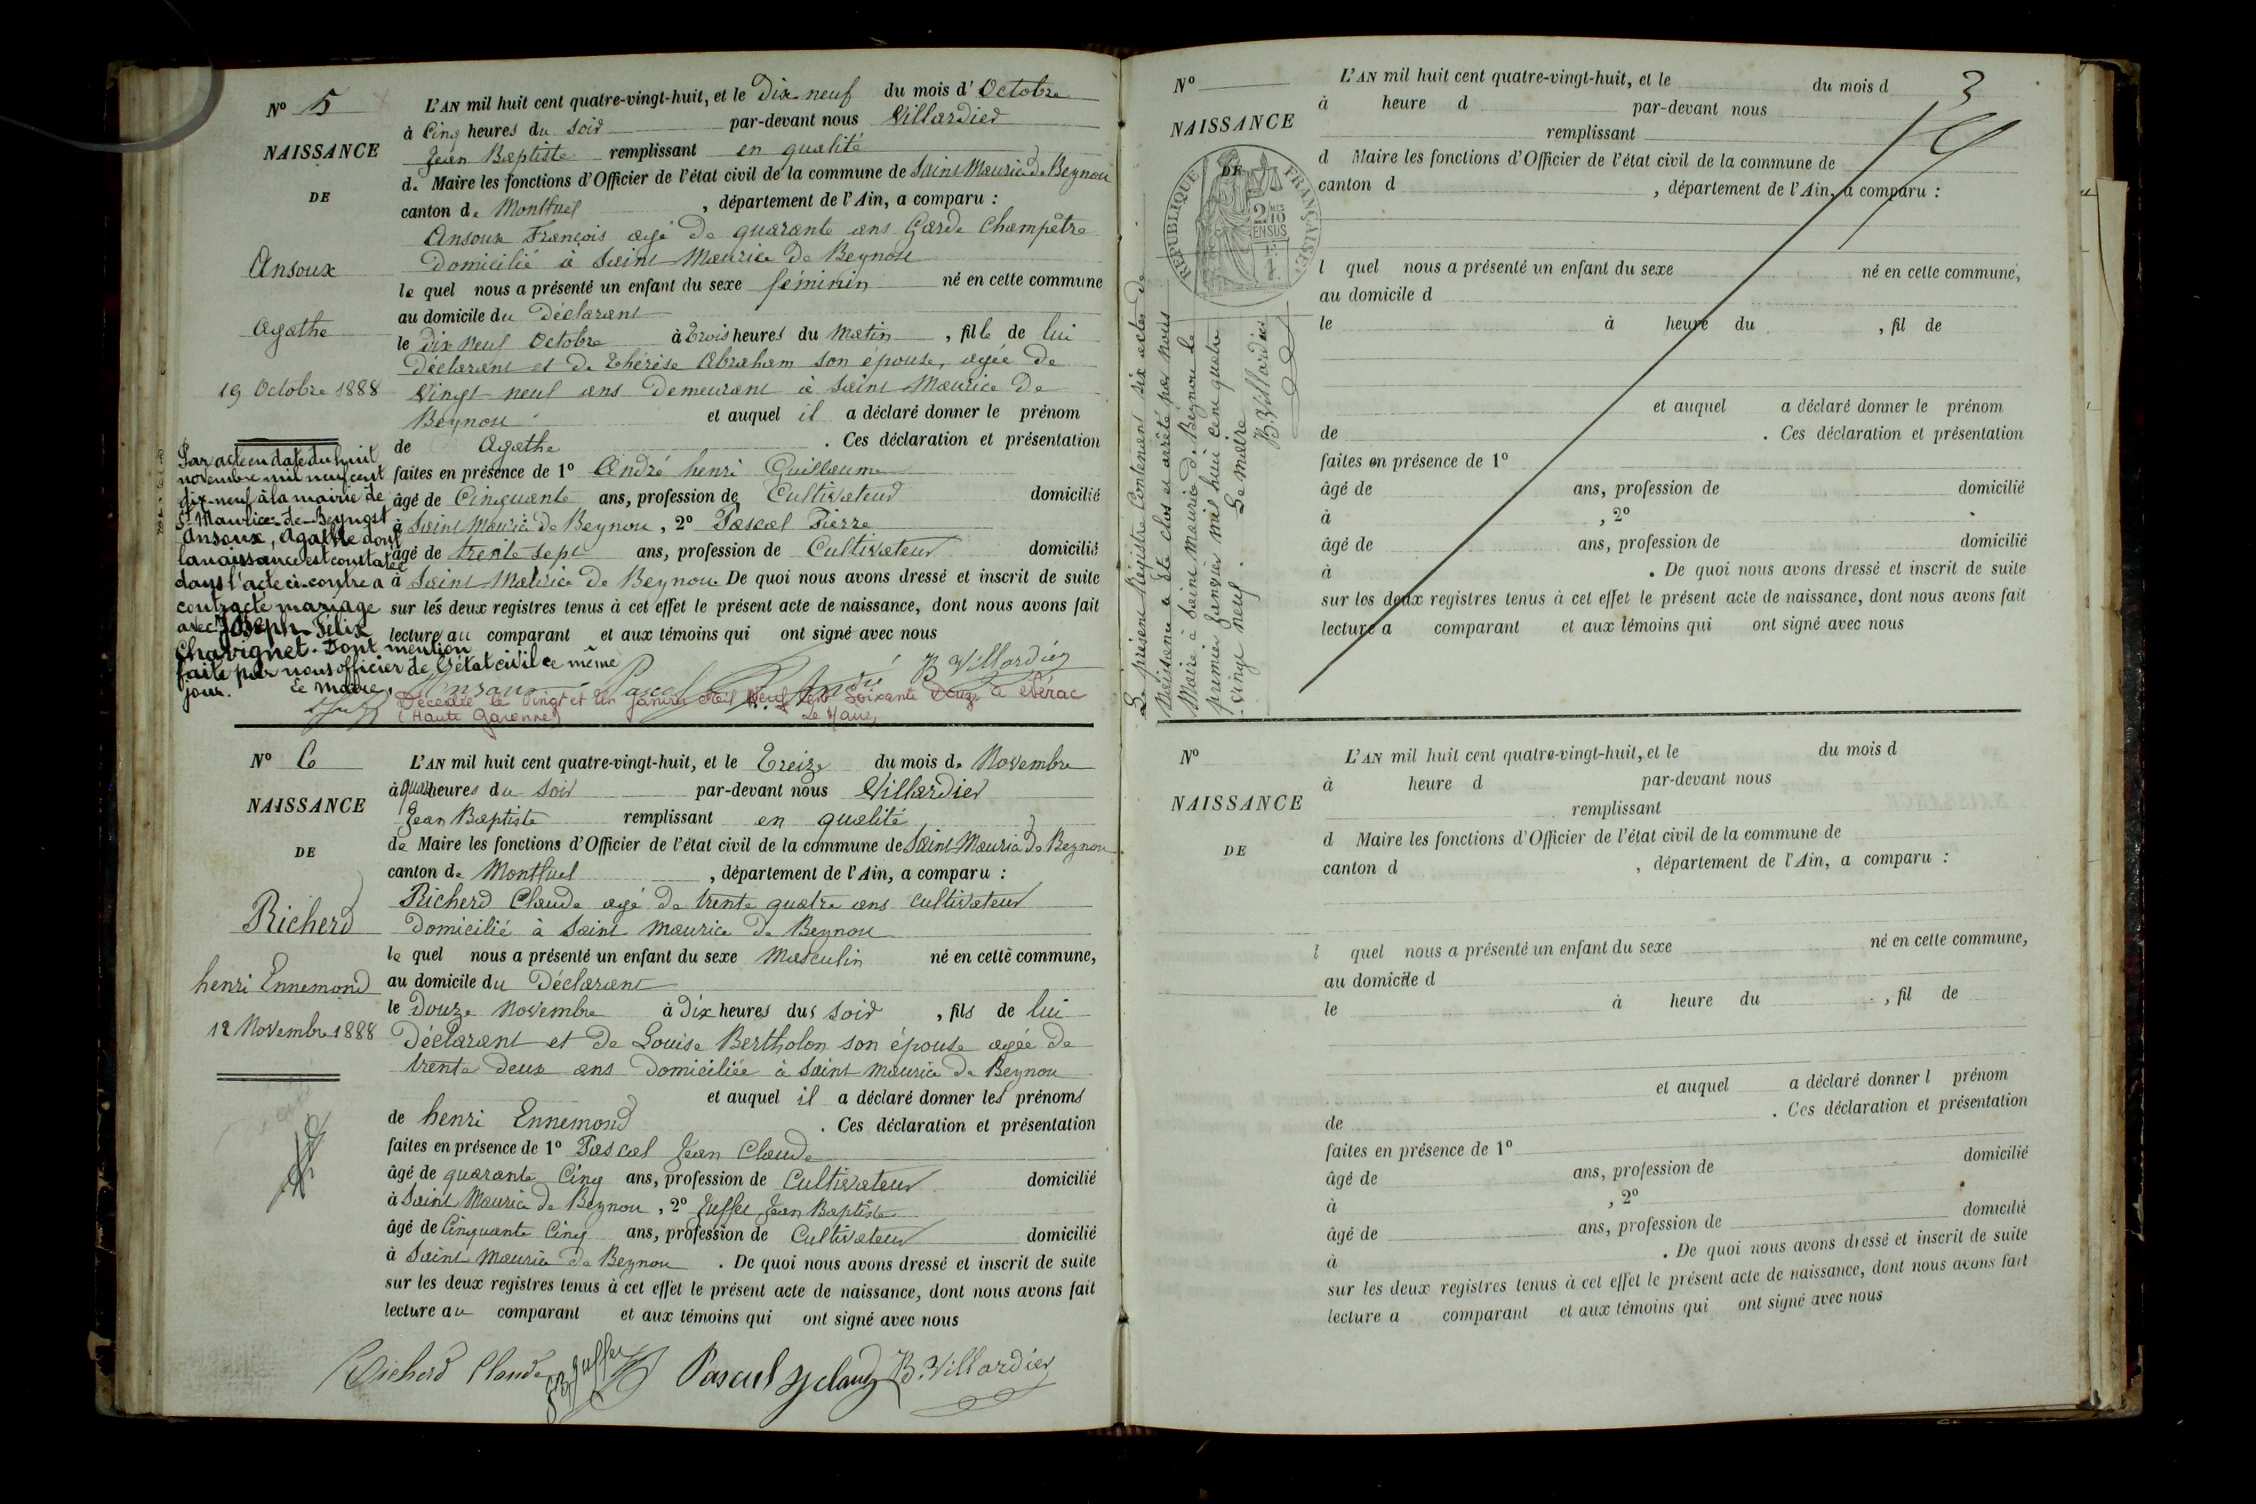 N° 5
NAISSANCE
DE
Ansoux
Agathe
19 Octobre 1888
Par acte en date du huit
novembre mil neuf cent
dix-neuf à la mairie de
St Maurice-de-Beynost
Ansoux, Agathe dont
la naissance est constatée
dans l'acte ci-contre a
contracté mariage
avec Joseph-Félix
Chavignet. Dont mention
faite par nous officier de l'état civil ce même
jour. Le Maire,
L'AN mil huit cent quatre-vingt-huit, et le Dix neuf du mois d'Octobre
à Cinq heures du soir par-devant nous Villardier
Jean Baptiste remplissant en qualité
de Maire les fonctions d'Officier de l'état civil de la commune de Saint Maurice de Beynou
canton de Montluel, département de l'Ain, a comparu :
Ansoux François agé de quarante ans Garde Champêtre
Domicilié à Saint Maurice de Beynou
le quel nous a présenté un enfant du sexe féminin né en cette commune
au domicile du Déclarant
le Dix Neuf Octobre à Trois heures du Matin, fille de lui
Déclarant et de Thérèse Abraham son épouse, agée de
Vingt neuf ans Demeurant à Saint Maurice de
Beynou et auquel il a déclaré donner le prénom
de Agathe. Ces déclaration et présentation
faites en présence de 1° André henri Guillaume
âgé de Cinquante ans, profession de Cultivateur domicilié
à Saint Maurice de Beynou, 2° Pascal Pierre
âgé de trente sept ans, profession de Cultivateur domicilié
à Saint Maurice De Beynou De quoi nous avons dressé et inscrit de suite
sur les deux registres tenus à cet effet le présent acte de naissance, dont nous avons fait
lecture au comparant et aux témoins qui ont signé avec nous
Ansoux Pascal André B Villardier
Décédée le Vingt et Un Janvier Mil Neuf Cent Soixante Douze à
(Haute Garonne) Le Maire,
N° 6
NAISSANCE
DE
Richerd
henri Ennemond
12 Novembre 1888
L'AN mil huit cent quatre-vingt-huit, et le Treize du mois de Novembre
à quatre heures du soir par-devant nous Villardier
Jean Baptiste remplissant en qualité
de Maire les fonctions d'Officier de l'état civil de la commune de Saint Maurice De Beynou
canton de Montluel, département de l'Ain, a comparu :
Richerd Claude agé de trente quatre ans cultivateur
Domicilié à Saint Maurice De Beynou
le quel nous a présenté un enfant du sexe Masculin né en cette commune,
au domicile du Déclarant
le Douze Novembre à Dix heures du soir, fils de lui
Déclarant et de Louise Bertholon son épouse agée de
trente deux ans Domiciliée à Saint Maurice De Beynou
et auquel il a déclaré donner les prénoms
de henri Ennemond. Ces déclaration et présentation
faites en présence de 1° Pascal Jean Claude
âgé de quarante Cinq ans, profession de Cultivateur domicilié
à Saint Maurice de Beynou, 2° Juffet Jean Baptiste
âgé de Cinquante Cinq ans, profession de Cultivateur domicilié
à Saint Maurice De Beynou. De quoi nous avons dressé et inscrit de suite
sur les deux registres tenus à cet effet le présent acte de naissance, dont nous avons fait
lecture au comparant et aux témoins qui ont signé avec nous
Richerd Claude JB Juffet Pascal J claude B. Villardier
3
N°
NAISSANCE
DE
RÉPUBLIQUE FRANÇAISE
2/10 EN SUS
Le présent Registre Contenant six actes de
Naissance a été clos et arrêté par nous
Maire à Saint Maurice de Beynou le
premier Janvier mil huit cent quatre
vingt neuf. Le Maire
B. Villardier
L'AN mil huit cent quatre-vingt-huit, et le du mois d
à heure d par-devant nous
remplissant
d Maire les fonctions d'Officier de l'état civil de la commune de
canton d, département de l'Ain, a comparu :
l quel nous a présenté un enfant du sexe né en cette commune,
au domicile d
le à heure du, fil de
et auquel a déclaré donner le prénom
de. Ces déclaration et présentation
faites en présence de 1°
âgé de ans, profession de domicilié
à, 2°
âgé de ans, profession de domicilié
à. De quoi nous avons dressé et inscrit de suite
sur les deux registres tenus à cet effet le présent acte de naissance, dont nous avons fait
lecture a comparant et aux témoins qui ont signé avec nous
N°
NAISSANCE
DE
L'AN mil huit cent quatre-vingt-huit, et le du mois d
à heure d par-devant nous
remplissant
d Maire les fonctions d'Officier de l'état civil de la commune de
canton d, département de l'Ain, a comparu :
l quel nous a présenté un enfant du sexe né en cette commune,
au domicile d
le à heure du, fil de
et auquel a déclaré donner l prénom
de. Ces déclaration et présentation
faites en présence de 1°
âgé de ans, profession de domicilié
à, 2°
âgé de ans, profession de domicilié
à. De quoi nous avons dressé et inscrit de suite
sur les deux registres tenus à cet effet le présent acte de naissance, dont nous avons fait
lecture a comparant et aux témoins qui ont signé avec nous